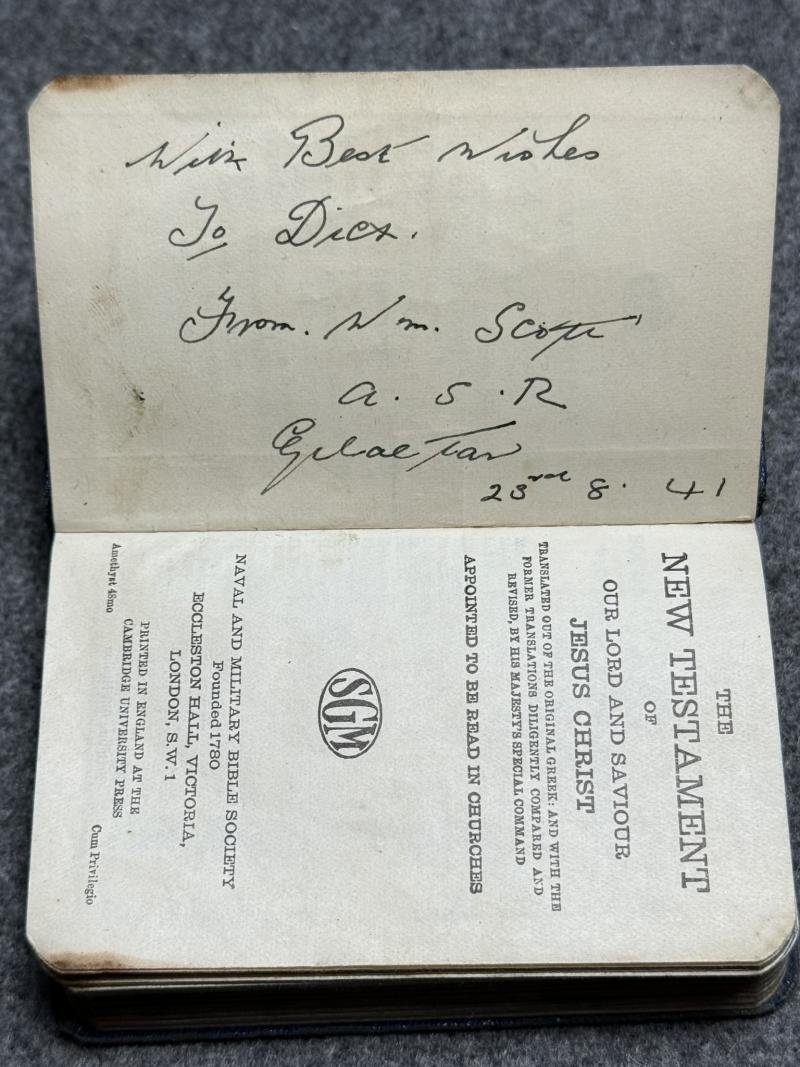 With Best Wishes
To Dick.
From. Wm. Scott
A. S. R
Gibraltar
23rd 8. 41
THE
NEW TESTAMENT
OF
OUR LORD AND SAVIOUR
JESUS CHRIST
TRANSLATED OUT OF THE ORIGINAL GREEK: AND WITH THE
FORMER TRANSLATIONS DILIGENTLY COMPARED AND
REVISED, BY HIS MAJESTY'S SPECIAL COMMAND
APPOINTED TO BE READ IN CHURCHES
SGM
NAVAL AND MILITARY BIBLE SOCIETY
Founded 1780
ECCLESTON HALL, VICTORIA,
LONDON, S.W.1
PRINTED IN ENGLAND AT THE
CAMBRIDGE UNIVERSITY PRESS
Amethyst 48mo
Cum Privilegio